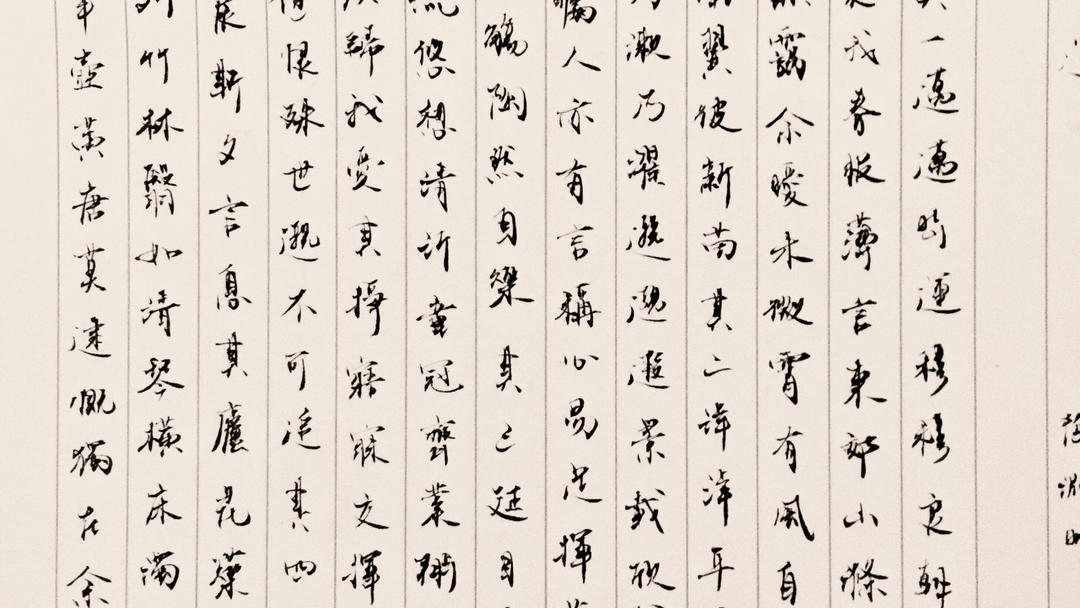 陶淵明
其一邁邁時運穆穆良朝
我春服薄言東郊山滌
靄余曖木微霄有風自
南翼彼新苗其二洋洋平
乃漱乃濯邈邈遐景載欣
矚人亦有言稱心易足揮
觴陶然自樂其三延目
流悠想清沂童冠齊業閒
以歸我愛其靜寤寐交揮
但恨殊世邈不可追其四
晨斯夕言息其廬花藥
列竹林翳如清琴橫床濁
半壺黃唐莫逮慨獨在余